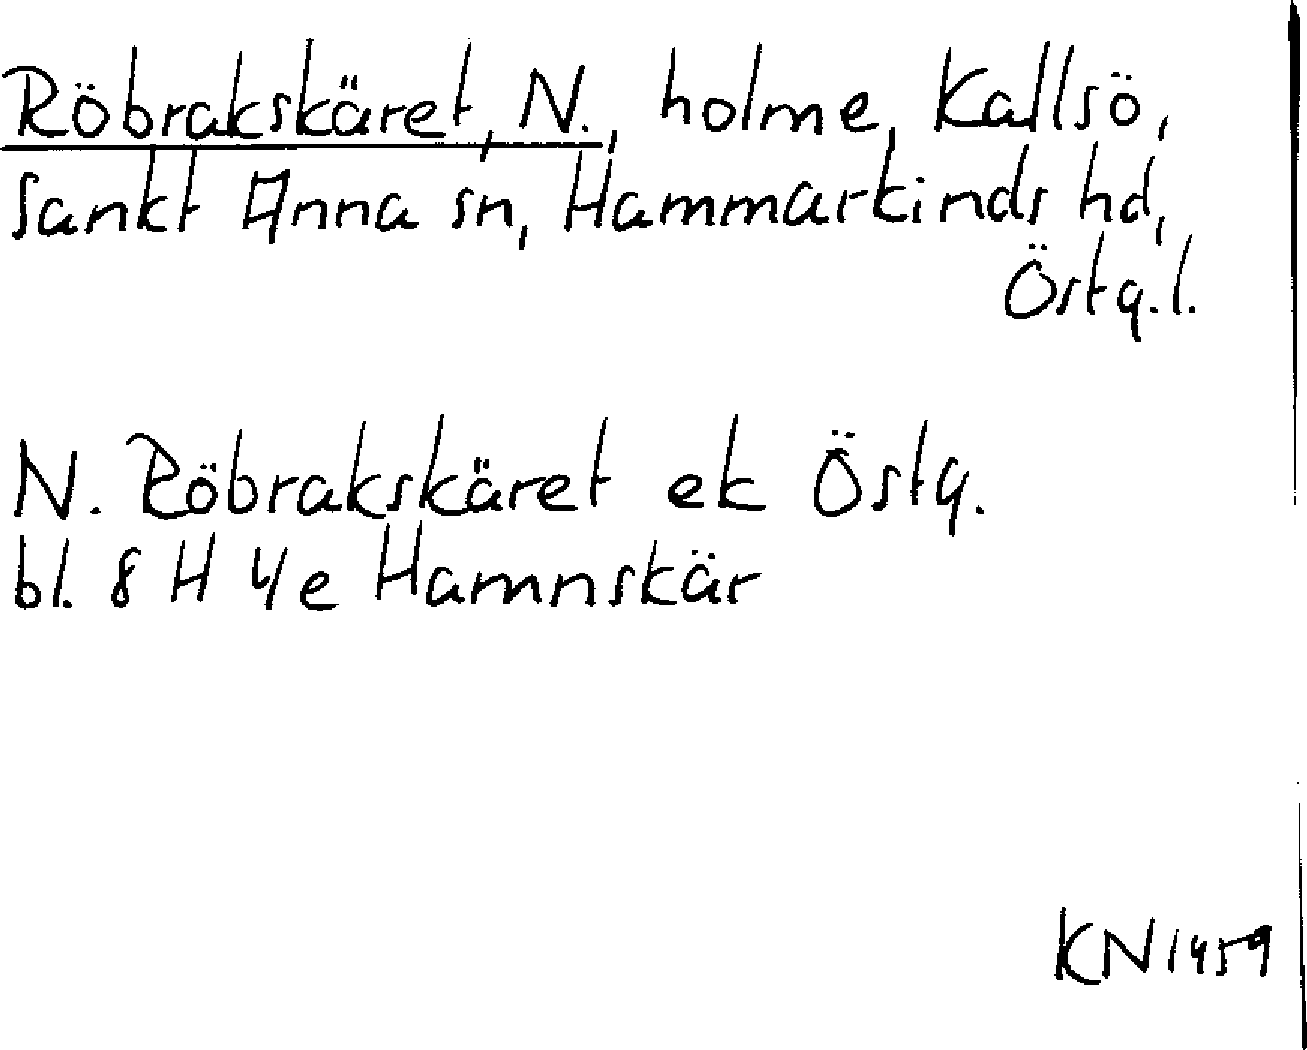 Röbrakskäret, N., holme, Kallsö,
Sankt Anna sn, Hammarkinds hd,
Östg.l.
N. Röbrakskäret ek Östg.
bl. 8 H 4/e Hamnskär
KN 1459